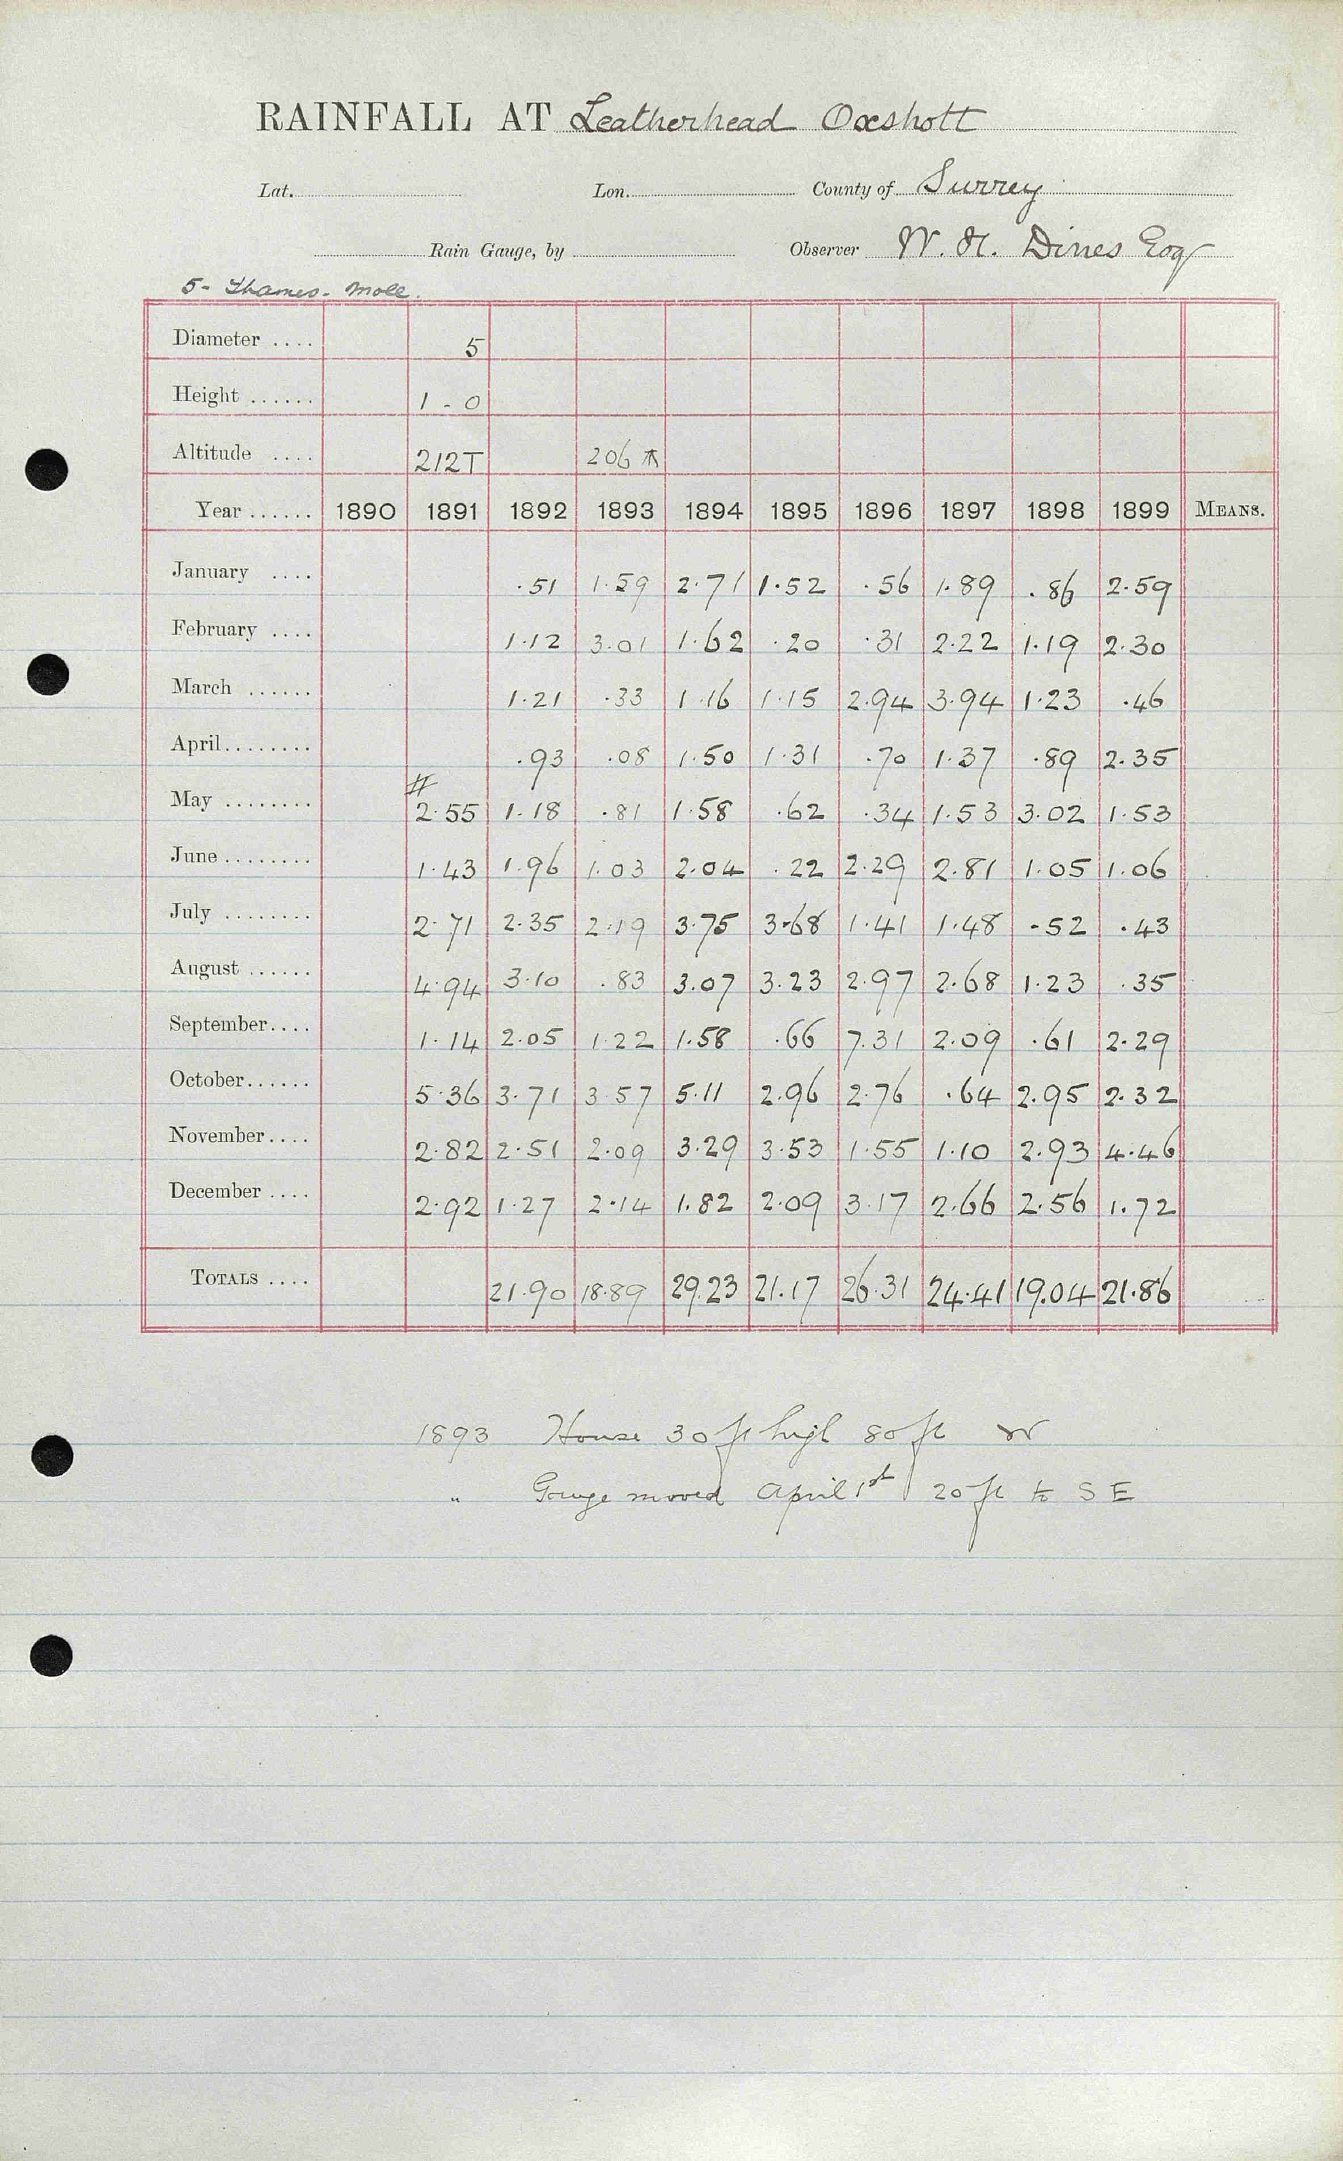 RAINFALL AT Leatherhead Oxshott
Lat. Lon. County of Surrey
Rain Gauge, by Observer W. H. Dines Esq
5- Thames- Mole.
Diameter .... 5
Height ...... 1-0
Altitude .... 212T 206
Year ...... 1890 1891 1892 1893 1894 1895 1896 1897 1898 1899 MEANS.
January .... .51 1.59 2.71 1.52 .56 1.89 .86 2.59
February .... 1.12 3.01 1.62 .20 .31 2.22 1.19 2.30
March ...... 1.21 .33 1.16 1.15 2.94 3.94 1.23 .46
April........ .93 .08 1.50 1.31 .70 1.37 .89 2.35
#
May ........ 2.55 1.18 .81 1.58 .62 .34 1.53 3.02 1.53
June ........ 1.43 1.96 1.03 2.04 .22 2.29 2.81 1.05 1.06
July ........ 2.71 2.35 2.19 3.75 3.68 1.41 1.48 .52 .43
August ...... 4.94 3.10 .83 3.07 3.23 2.97 2.68 1.23 .35
September.... 1.14 2.05 1.22 1.58 .66 7.31 2.09 .61 2.29
October...... 5.36 3.71 3.57 5.11 2.96 2.76 .64 2.95 2.32
November.... 2.82 2.51 2.09 3.29 3.53 1.55 1.10 2.93 4.46
December .... 2.92 1.27 2.14 1.82 2.09 3.17 2.66 2.56 1.72
TOTALS .... 21.90 18.89 29.23 21.17 26.31 24.41 19.04 21.86
1893 House 30 ft high 80 ft
" Gauge moved April 1st 20 ft to S E